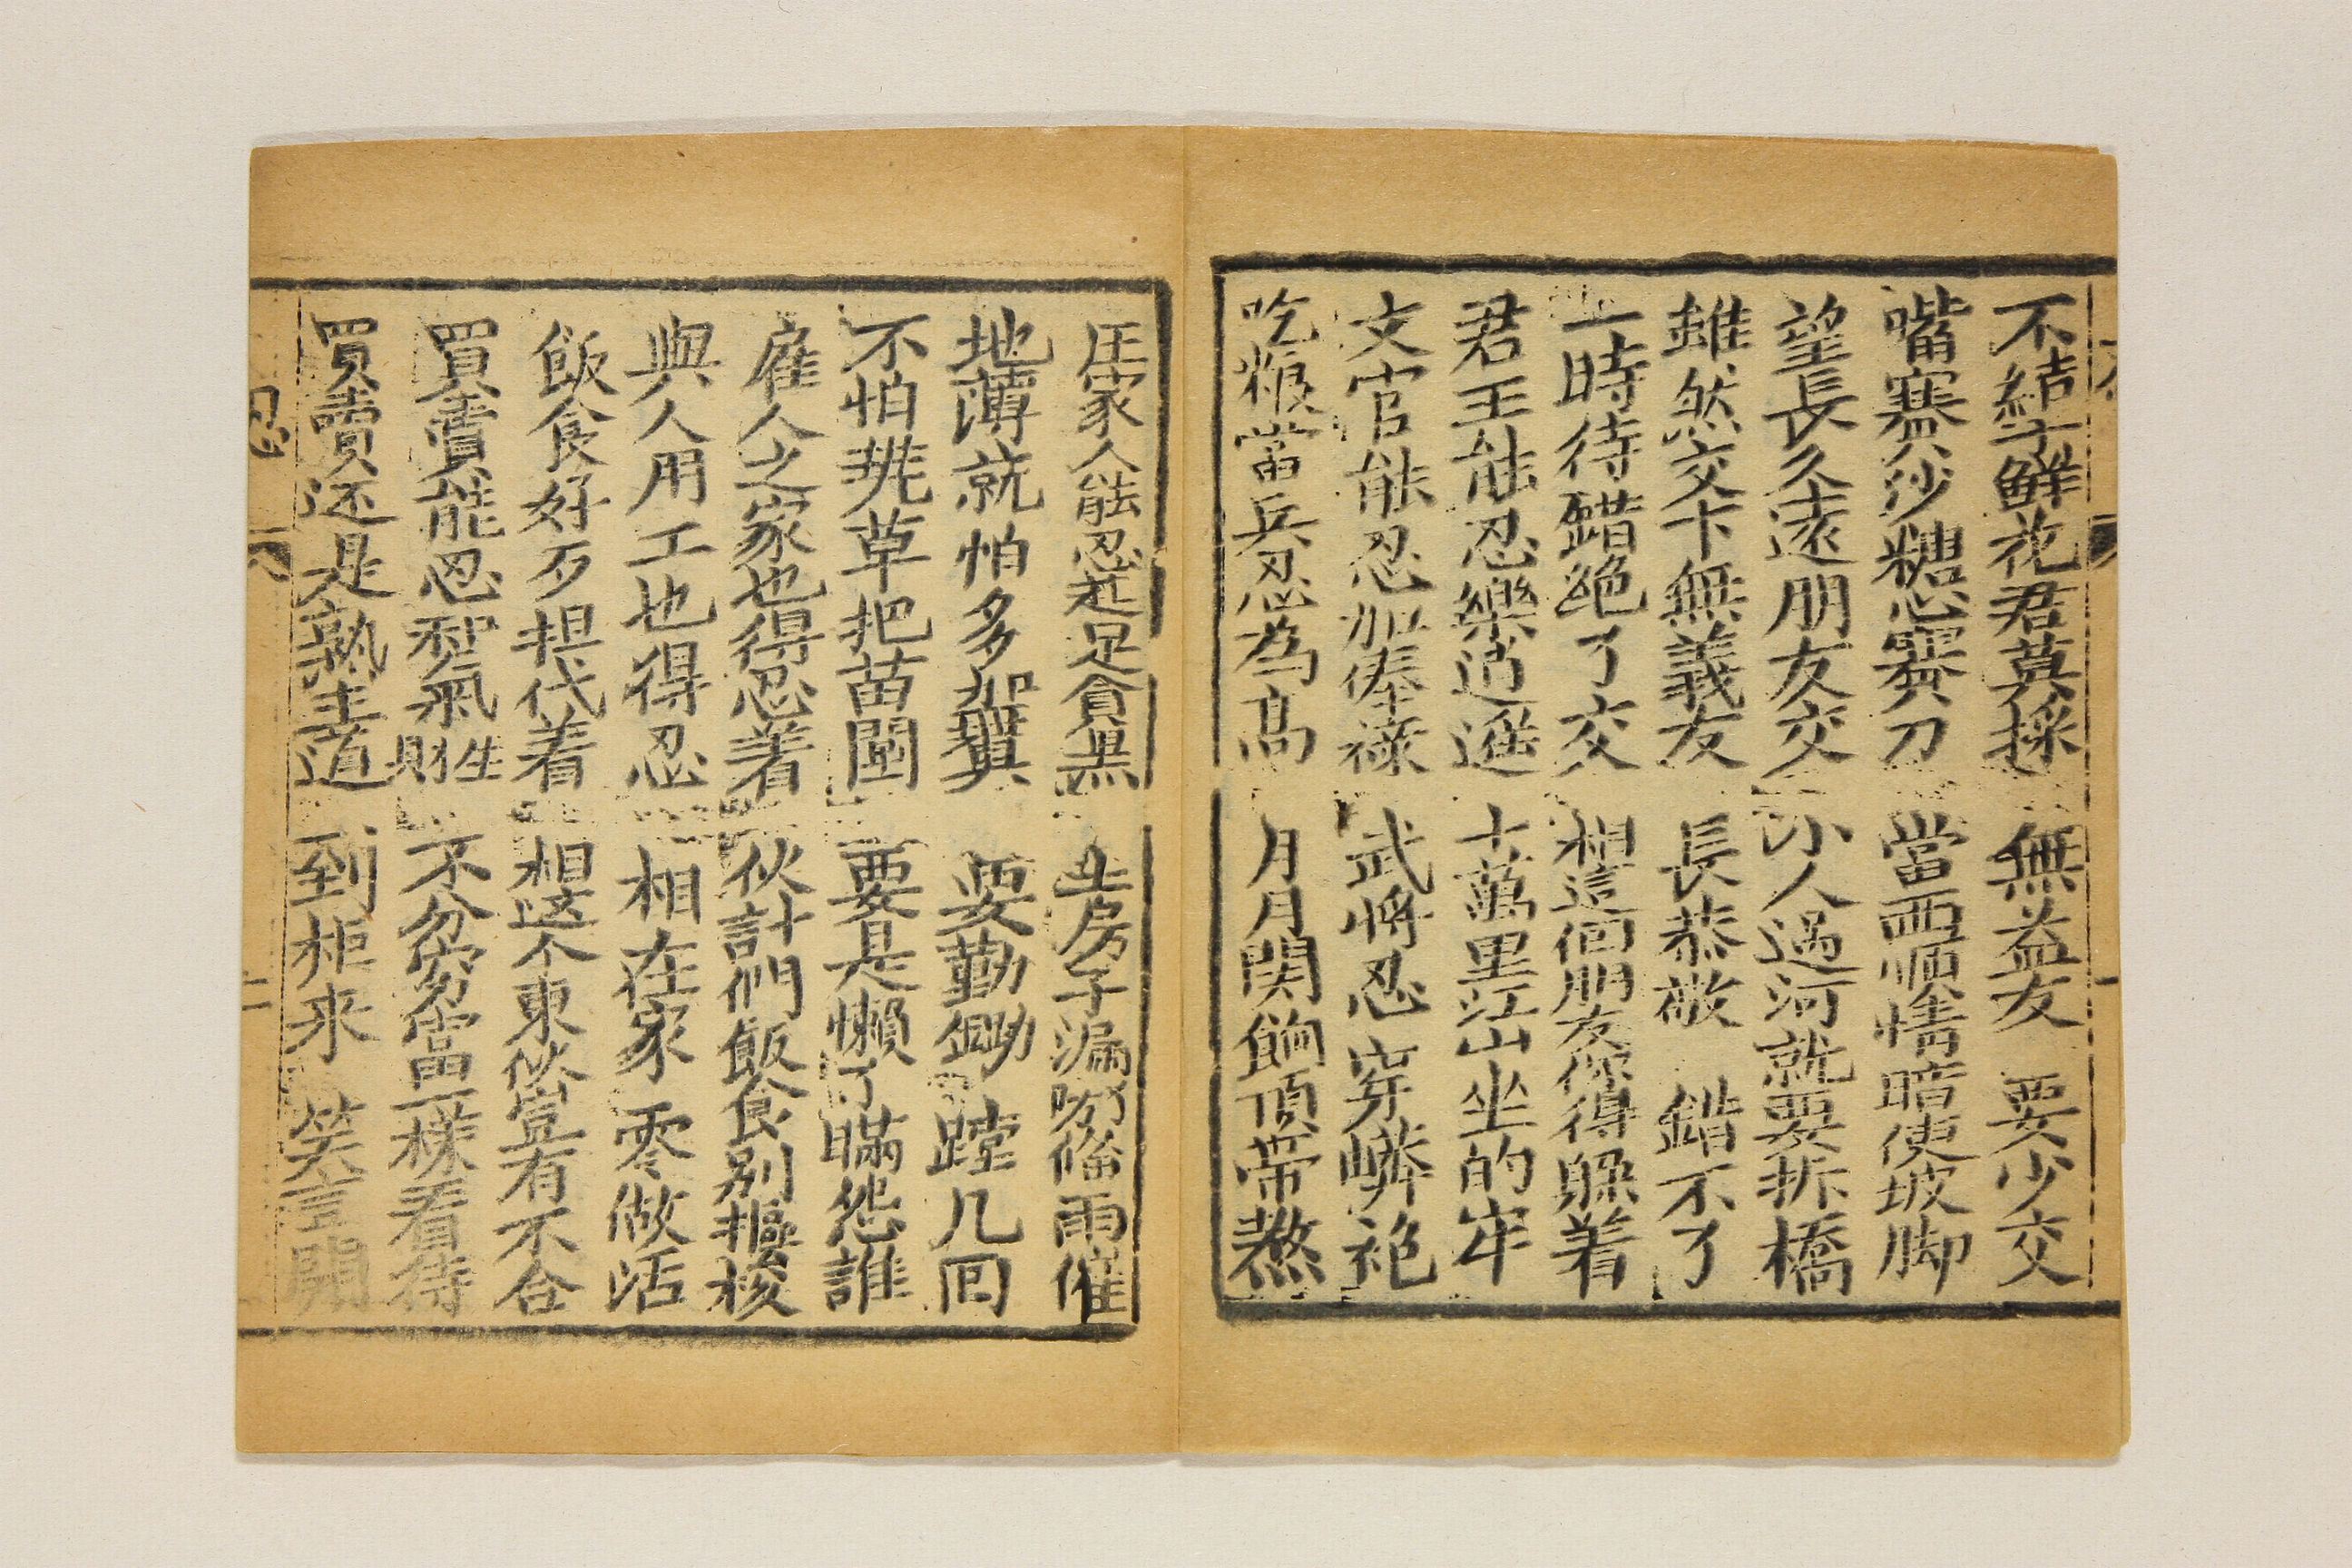 不結子鮮花君莫採 無益友 要少交
嘴賽沙糖心賽刀 當面順情暗使坡脚
望長久遠朋友交 小人過河就要拆橋
雖然交下無義友 長恭敬 錯不了
一時待錯絕了交 相這個朋友你得躲着
君王能忍樂逍遥 十萬里江山坐的牢
文官能忍加俸禄 武將忍 穿蟒袍
吃粮當兵忍為高 月月関餉頂帶熬
庄家人能忍起足貪黑 房子漏 修雨催
地薄就怕多加糞 要勤鋤 蹚几回
不怕挑草把苗圖 要是懶了瞞怨誰
雇人之家也得忍着 伙計們飯食别摳梭
與人用工也得忍 相在家 零做活
飯食好歹担代着 相这个東伙豈有不合
買賣能忍和氣生財 不分窮富一樣看待
買賣还是熟主道 到柜来 笑言開
忍
二